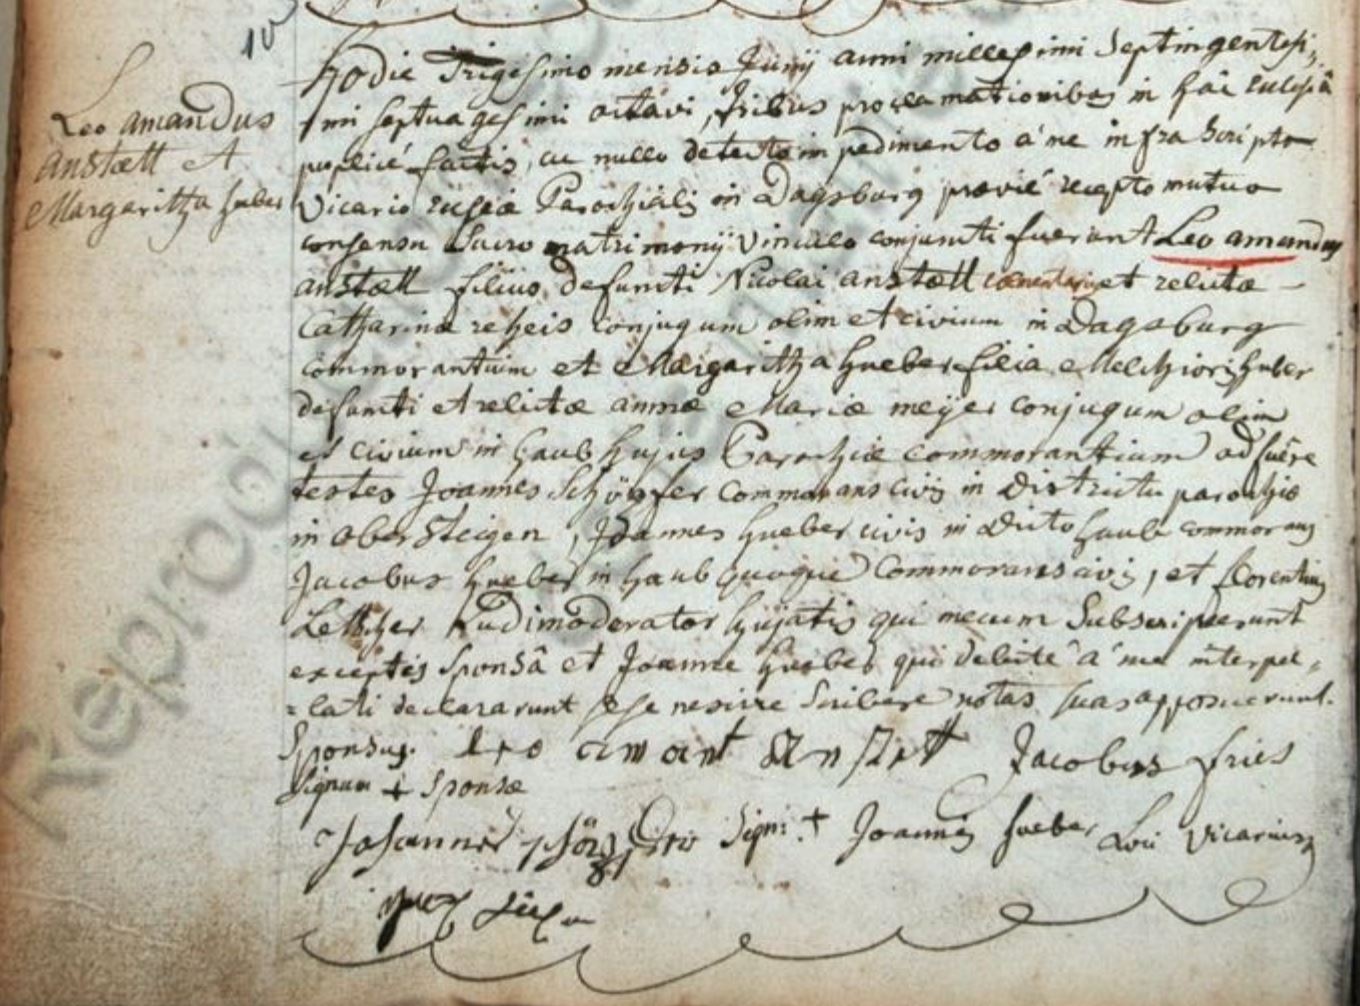 10
Leo amandus
anstætt et
Margaritha hueber
hodie Trigesimo mensis Junij anni millesimi Septingentesi,
mi septuagesimi octavi, tribus proclamationibus in hac Ecclesiâ
publicè factis, ac nullo detecto impedimento à me infra Scripto
Vicario Parochialis in Dagsburg prævie recepto mutuo
consensu Sacro matrimonij vinculo conjuncti fuerunt Leo amandus
anstætt filius defuncti Nicolai anstætt cæmentarij et relictæ
Catharinæ reheis conjugum olim et civium in Dagsburg
commorantium et Margaritha hueber filia Melchioris huber
defuncti et relictæ annæ Mariæ meyer conjugum olim
et civium in haub hujus Parochiæ commorantium adfuêre
testes Joannes Schöpfer commorans civis in Districtu parochiæ
in obersteigen, Joannes hueber civis in dicto haub commorans
Jacobus hueber in haub quoque commorans civis, et florentius
Ludimoderator hujatis qui mecum Subscripserunt
exceptis Sponsâ et Joanne hueber qui debitè à me interpel=
=lati declararunt sese nescire Scribere notas suas apposuerunt.
Sponsus. leo amant anstett Jacobus fries
Signum + Sponsæ
Johannes Sign: + Joannis hueber Vicarius